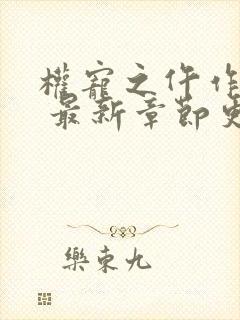 權寵之仵作
最新章節更
樂東九